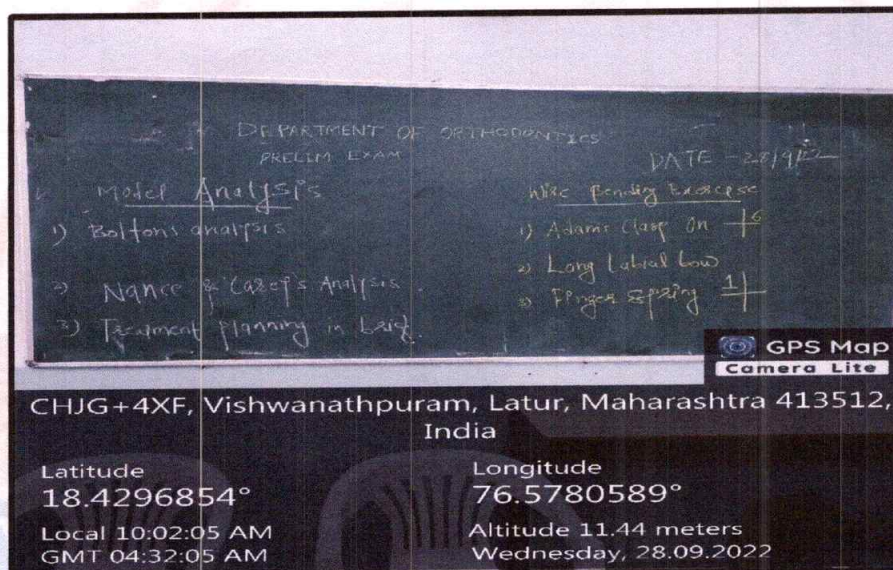 DEPARTMENT OF ORTHODONTICS
PRELIM EXAM
DATE - 28/9/22
Model Analysis
1) Boltons analysis
2) Nance & Carey's Analysis.
3) Treatment planning in brief.
Wire Bending Exercise
1) Adams Clasp On 6
2) Long Labial bow
3) Finger spring 1
GPS Map
Camera Lite
CHJG+4XF, Vishwanathpuram, Latur, Maharashtra 413512,
India
Latitude
18.4296854°
Longitude
76.5780589°
Local 10:02:05 AM
GMT 04:32:05 AM
Altitude 11.44 meters
Wednesday, 28.09.2022